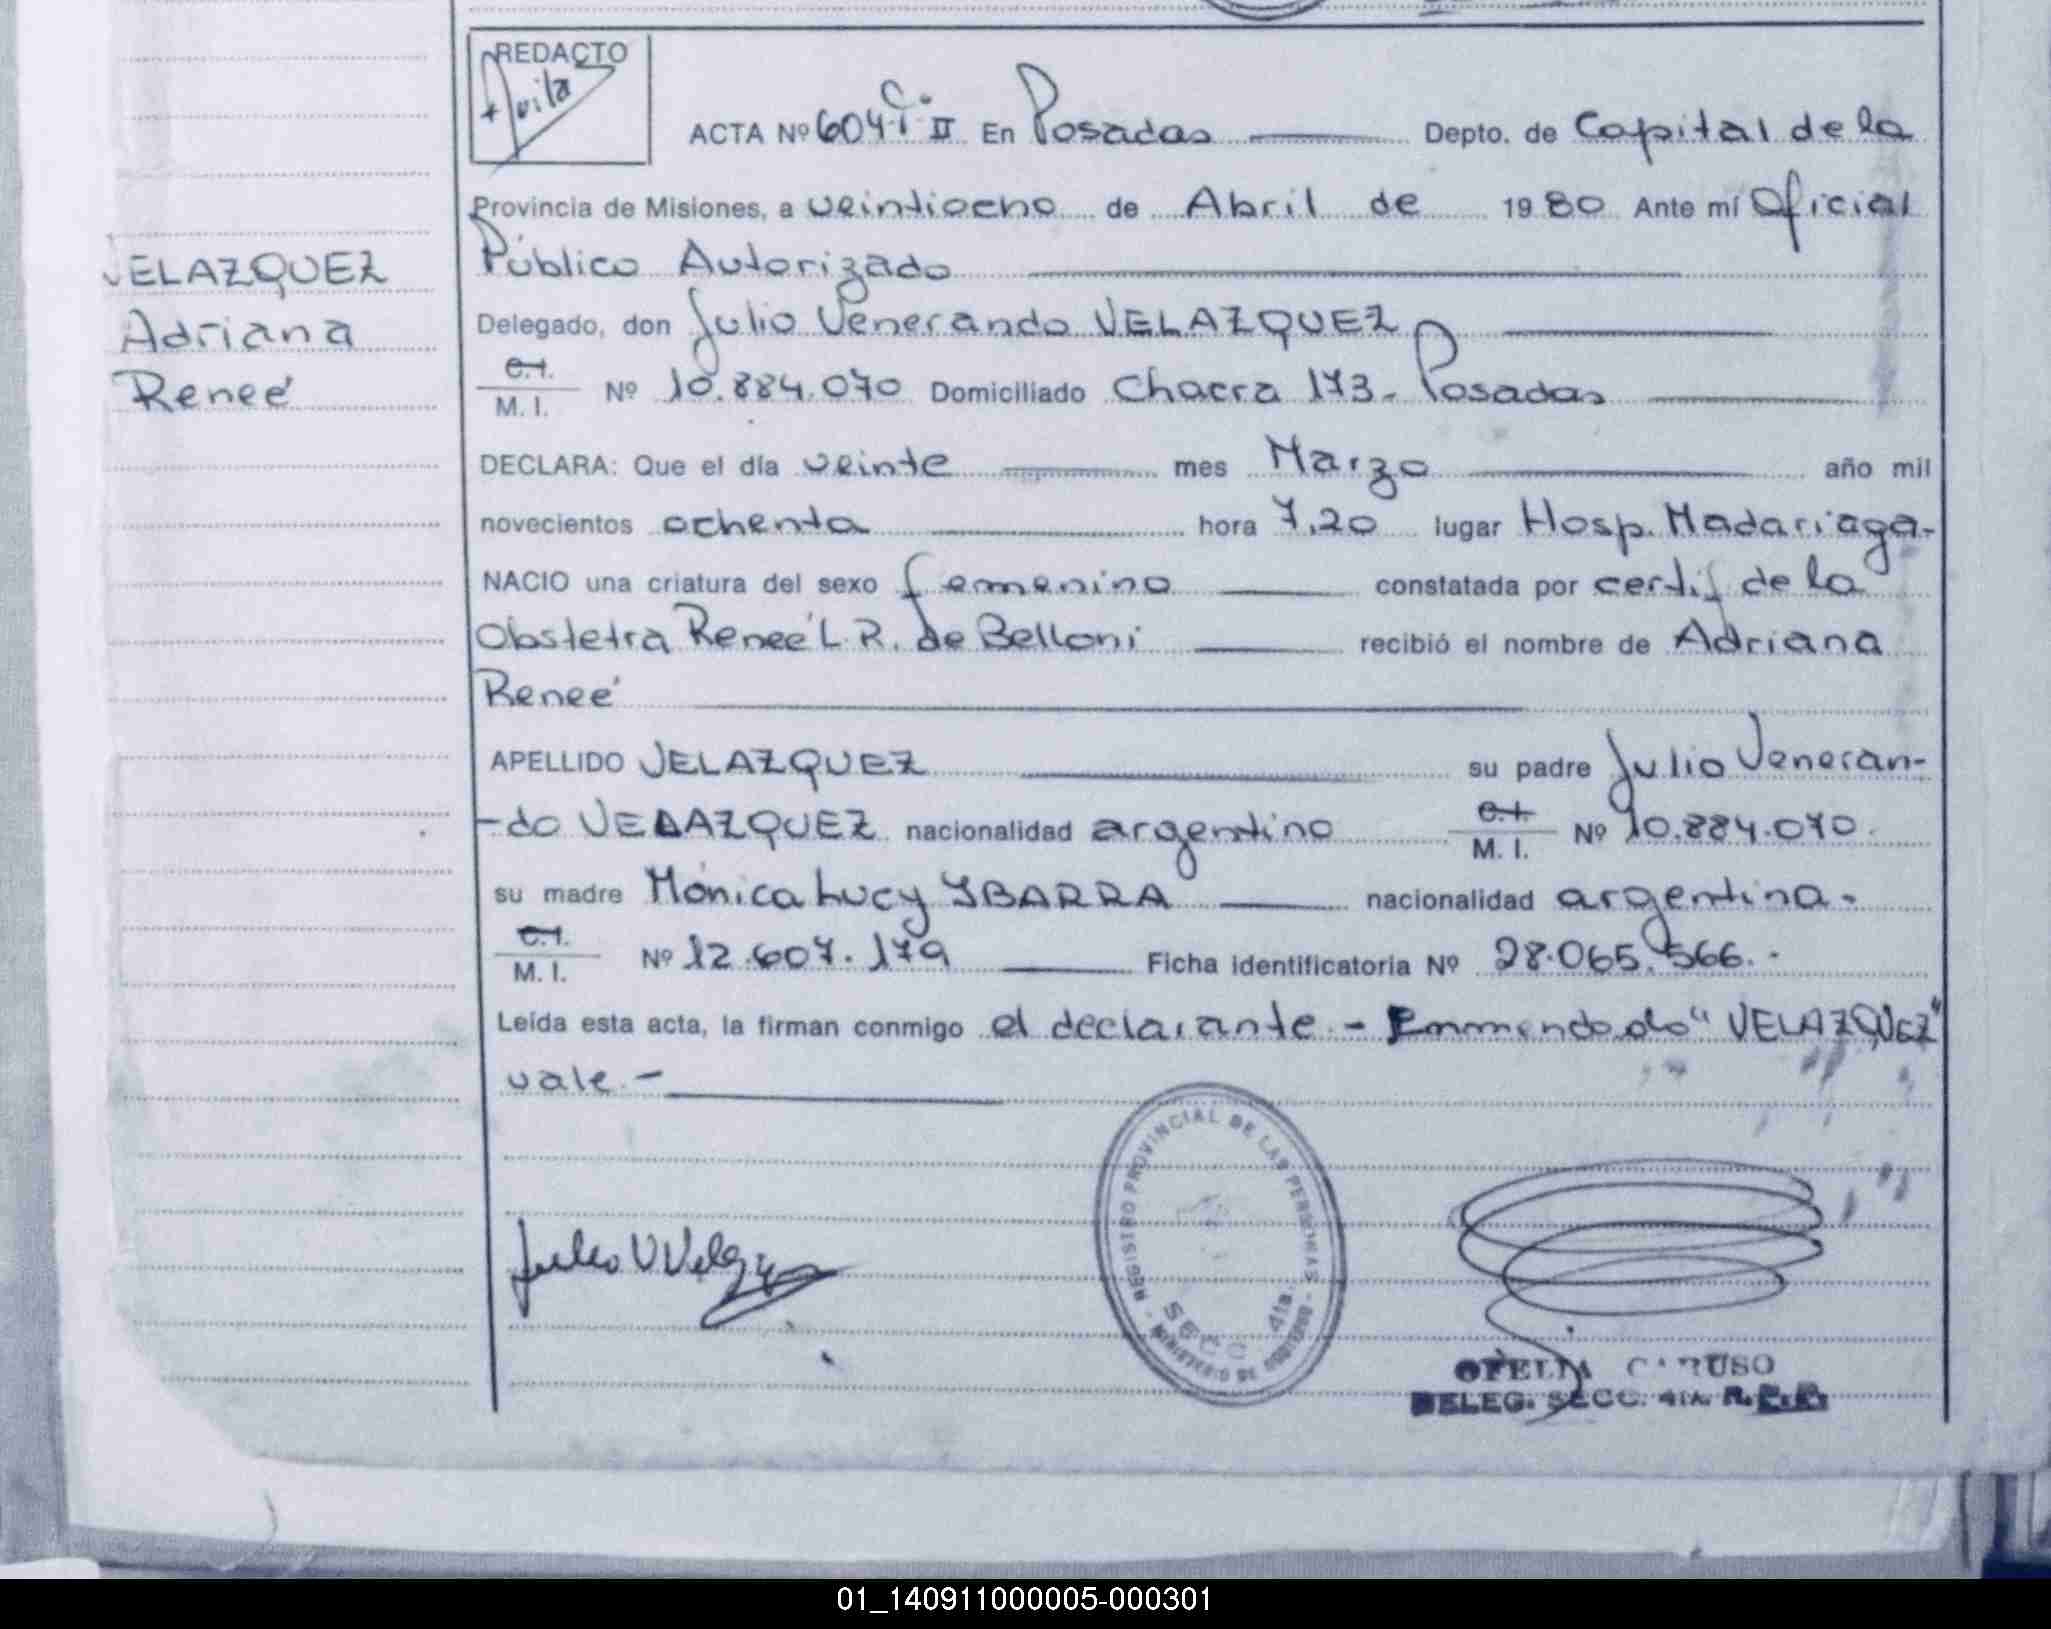 REDACTO
Avila
ACTA Nº 604 T° II En Posadas Depto. de Capital de la
Provincia de Misiones, a veintiocho de Abril de 1980 Ante mí Oficial
Público Autorizado
VELAZQUEZ
Adriana
Reneé
Delegado, don Julio Venerando VELAZQUEZ
C.I.
M. I. Nº 10.884.070 Domiciliado Chacra 173. Posadas
DECLARA: Que el día veinte mes Marzo año mil
novecientos ochenta hora 7,20 lugar Hosp. Madariaga-
NACIO una criatura del sexo femenino constatada por certif de la
Obstetra Reneé L.R. de Belloni recibió el nombre de Adriana
Reneé
APELLIDO VELAZQUEZ su padre Julio Veneran-
-do VELAZQUEZ nacionalidad argentino C.I.
M. I. Nº 10.884.070.
su madre Mónica Lucy YBARRA nacionalidad argentina.-
C.I.
M. I. Nº 12.607.179 Ficha identificatoria Nº 28.065.566.-
Leída esta acta, la firman conmigo el declarante - Enmendado "VELAZQUEZ"
vale.-
Julio V Velazquez
REGISTRO PROVINCIAL DE LAS PERSONAS - MINISTERIO DE GOBIERNO -
SECC 4ta.
OFELIA CARUSO
DELEG. SECC. 4ta. R.P.P.
01_140911000005-000301